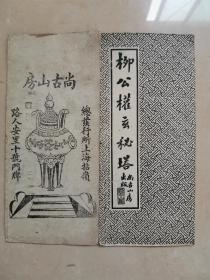 柳公權玄秘塔
尚古山房出版
尚古山房
總發行所上海拾
路人安里十號門牌